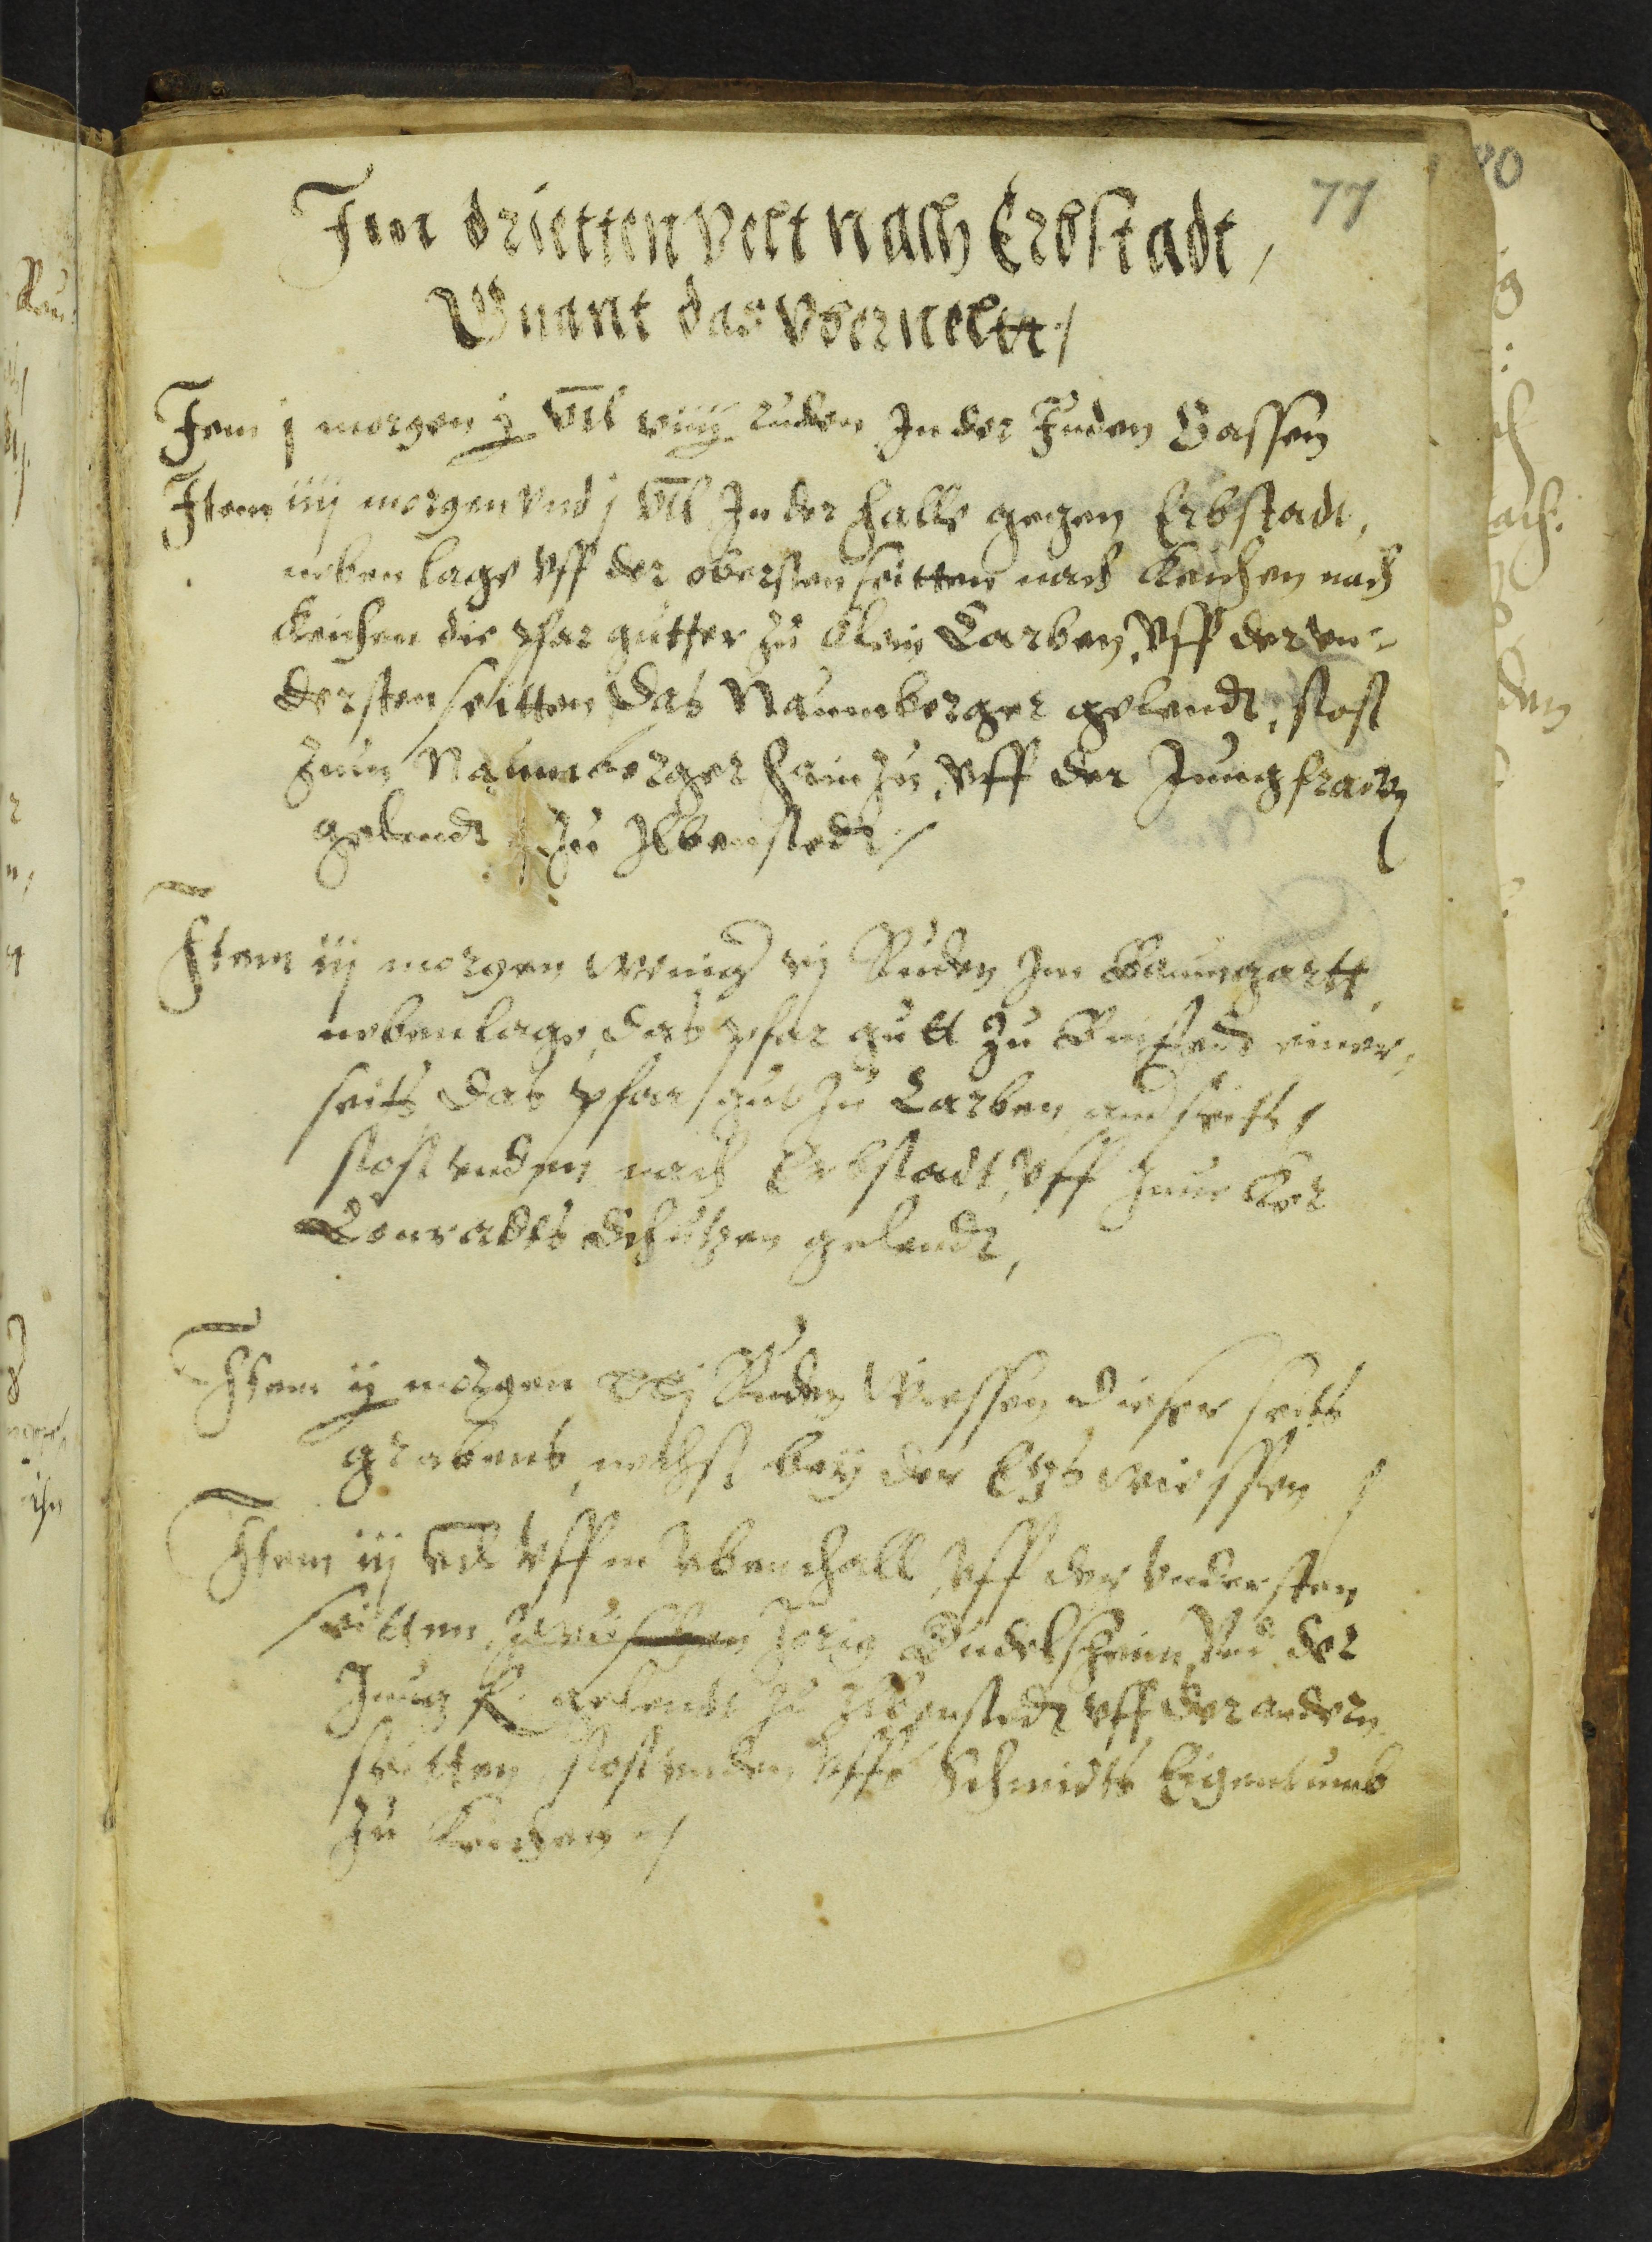 77
Im drietten velt nach Erbstadt,
Gnant das Vbervelt /
Item j morgen ij vtl viiij ruden In der Juden Gassen
Item iiij morgen vnd j vtl In der halle gegen Erbstadt,
neben lage vff der obersten seitten nach Keichen nach
Keichen die pfar gutter zu Klein Carben, vff der vn-
dersten seitten das Naumberger gelendt, stost
zum Naumberger hain zu, vff der Jungfrawen
gelendt zu Ilbenstedt /
Item iij morgen wenig vj Ruden Im Baumgartt,
neben lage, das pfar gutt zu einer-
seits das pfar gut zu Carben and seits /
stost vnden nach Erbstadt, vff
Conradts Schutzen gelendt,
Item ij morgen xxj Ruden Wiessen dieser seits
grabens, nechst bey der wiessen /
Item iij vtl vffm Ebenhall vff der vndersten
seitten, zwischen Jorig Budelsheim, vnd der
Jungf. gelendt zu Ilbenstedt vff der andern
seitten, stost vnden vffs Schmidts Eigentumb
zu Keichen /